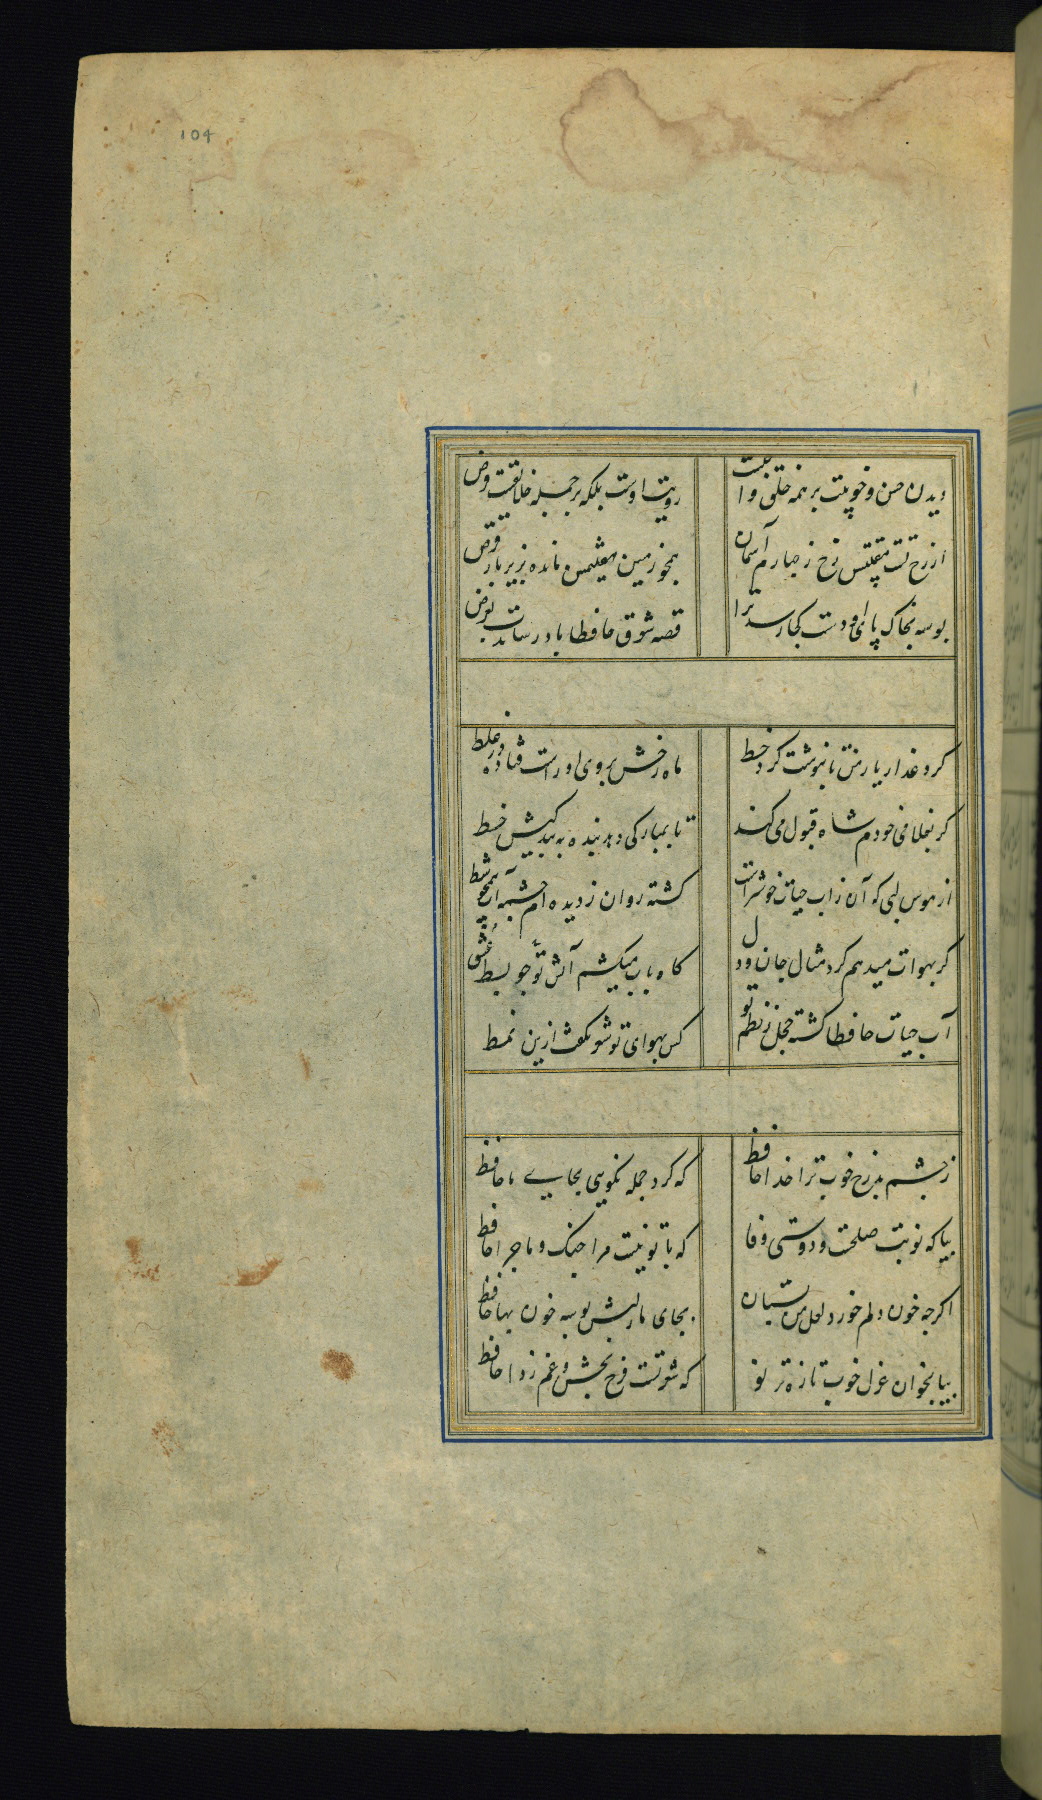 104
دیدن حسن و خوبیت بر همه خلق واجبست
رویت اوست بلکه بر جمله خلایقت فرض
از رخ تست مقتبس رخ ز چهارم آسمان
همچو زمین هفتمین مانده بزیر بار قرض
بوسه بخاک پای او دست کجا رسد ترا
قصه شوق حافظا باد رساندت بعرض
گرد عذار یار من تا بنوشت گرد خط
ماه ز رخش بروی او راست فتاده در غلط
گر بغلامی خودم شاه قبول می کند
تا بمبارکی دهد بنده به بندگیش خط
از هوس لبی که آن ز آب حیات خوشتراست
گشته روان ز دیده ام چشمه آب همچو شط
گر بهوات میدهم گرد مثال جان و دل
گاه باب میکشم آتش تو جو بط عشق
آب حیات حافظا گشته خجل ز نظم تو
کس بهوای تو شعر نگفت ازین نمط
ز چشم بد رخ خوب ترا خدا حافظ
که کرد جمله نکویی بجای ما حافظ
بیا که نوبت صلحت و دوستی و وفا
که با تو نیست مرا جنگ و ماجرا حافظ
اگرچه خون دلم خورد لعل من بستان
بجای ما ز لبش بوسه خون بها حافظ
بیا بخوان غزل خوب تازه تر نو
که شعر تست فرح بخش و غم زدا حافظ